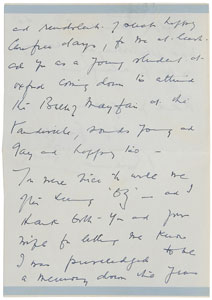 and
happy
carefree days, to me at least
and you as a young student at
Oxford coming down to attend
the Billy Mayfair at the
Vaudeville, sounds young and
gay and happy too –
You were nice to write me
after seeing "
thank both – You and your
wife for letting me know
I was privileged to be
a memory down the years